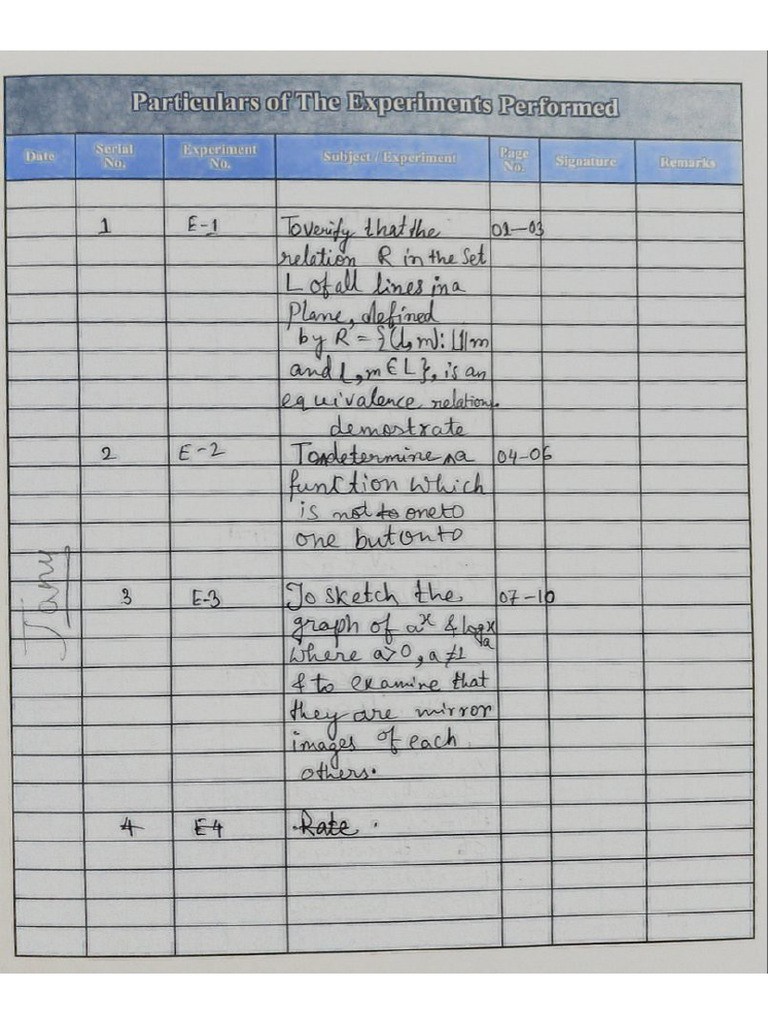 Particulars of The Experiments Performed
Date Serial No. Experiment No. Subject / Experiment Page No. Signature Remarks
1 E-1 To verify that the 01-03
relation R in the set
L of all lines in a
Plane, defined
by R = {(l, m): l||m
and l, m ∈ L}, is an
equivalence relation.
demostrate
2 E-2 To determine a 04-06
function which
is not to one to
one but onto
3 E-3 To sketch the 07-10
graph of aˣ & logₐx
where a>0, a≠1
& to examine that
they are mirror
images of each
others.
4 E4 Rate .